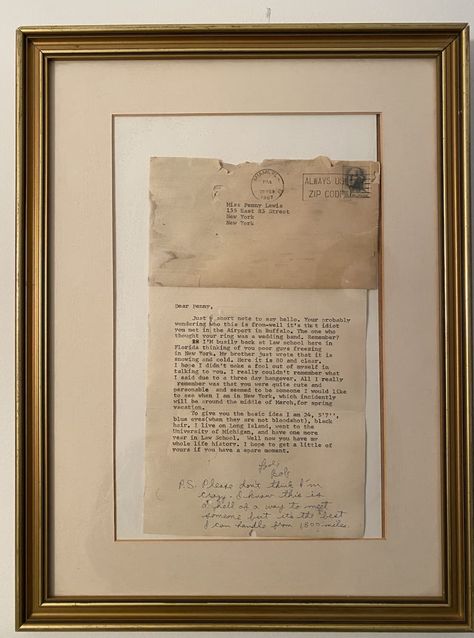 MIAMI, FL
PM
1967
ALWAYS USE
ZIP CODE
Miss Penny Lewis
155 East 83 Street
New York
New York
Dear Penny,
Just a short note to say hello. Your probably
wondering who this is from-well it's that idiot
you met in the Airport in Buffalo. The one who
thought your ring was a wedding band. Remember?
I'M busily back at law school here in
Florida thinking of you poor guys freezing
in New York. My brother just wrote that it is
snowing and cold. Here it is 80 and clear.
I hope I didn't make a fool out of myself in
talking to you. I really couldn't remember what
I said due to a three day hangover. All I really
remember was that you were quite cute and
personable and seemed to be someone I would like
to see when I am in New York, which incidently
will be around the middle of March,for spring
vacation.
To give you the basic idea I am 24, 5'7'',
blue eyes(when they are not bloodshot), black
hair. I live on Long Island, went to the
University of Michigan, and have one more
year in Law School. Well now you have my
whole life history. I hope to get a little of
yours if you have a spare moment.
Love,
Bob
P.S. Please don't think I'm
crazy. I know this is
a hell of a way to meet
someone but it's the best
I can handle from 1500 miles.